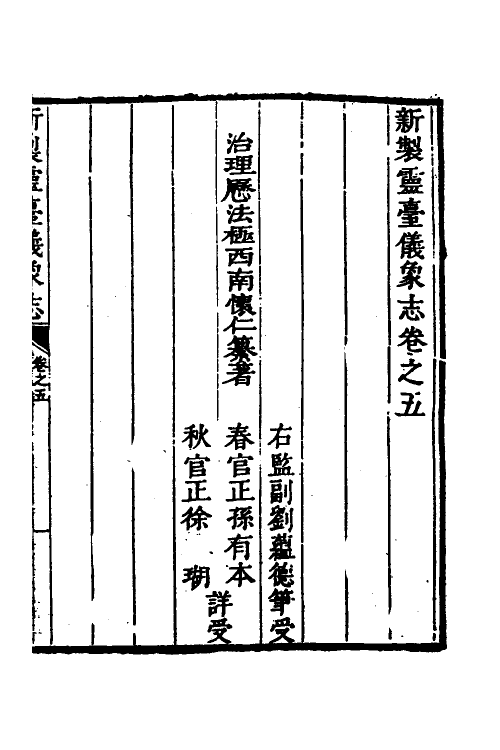 新製靈臺儀象志卷之五
治理歷法極西南懷仁纂著
右監副劉蘊德筆受
春官正孫有本
秋官正徐　瑚
詳受
新製靈臺儀象志
卷之五